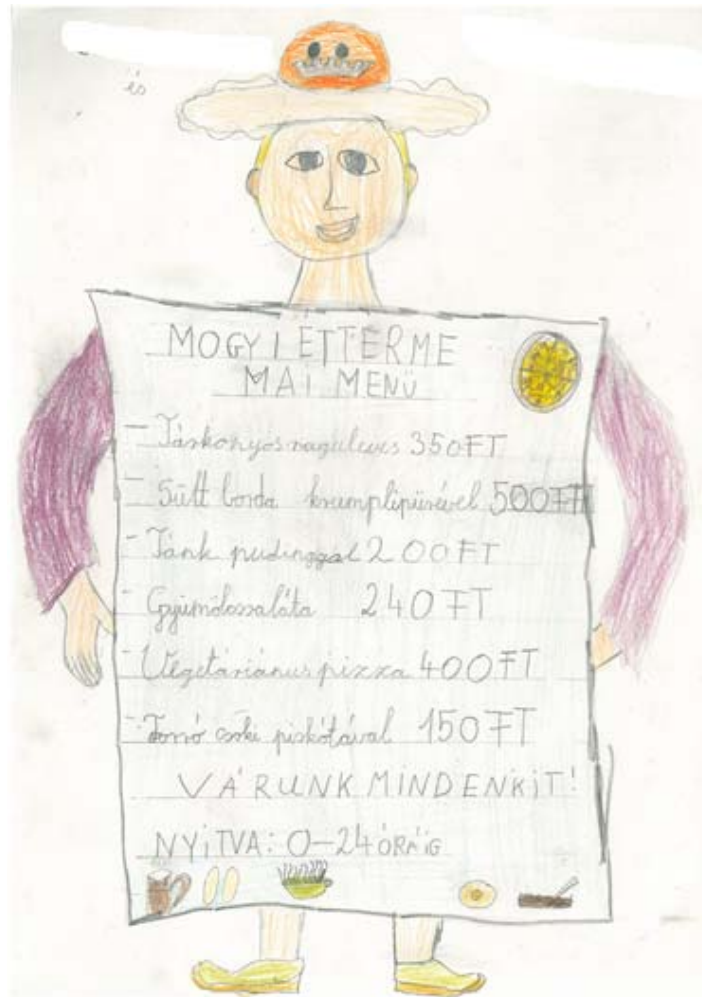 és
MOGYI ETTERME
MAI MENÜ
- Tárkonyos raguleves 350FT
- Sült borda krumplipürével 500FT
- Fánk pudinggal 200FT
- Gyümölcssaláta 240FT
- Vegetáriánus pizza 400FT
- Forró csoki piskótával 150FT
VÁRUNK MINDENKIT!
NYITVA: 0-24 ÓRÁIG